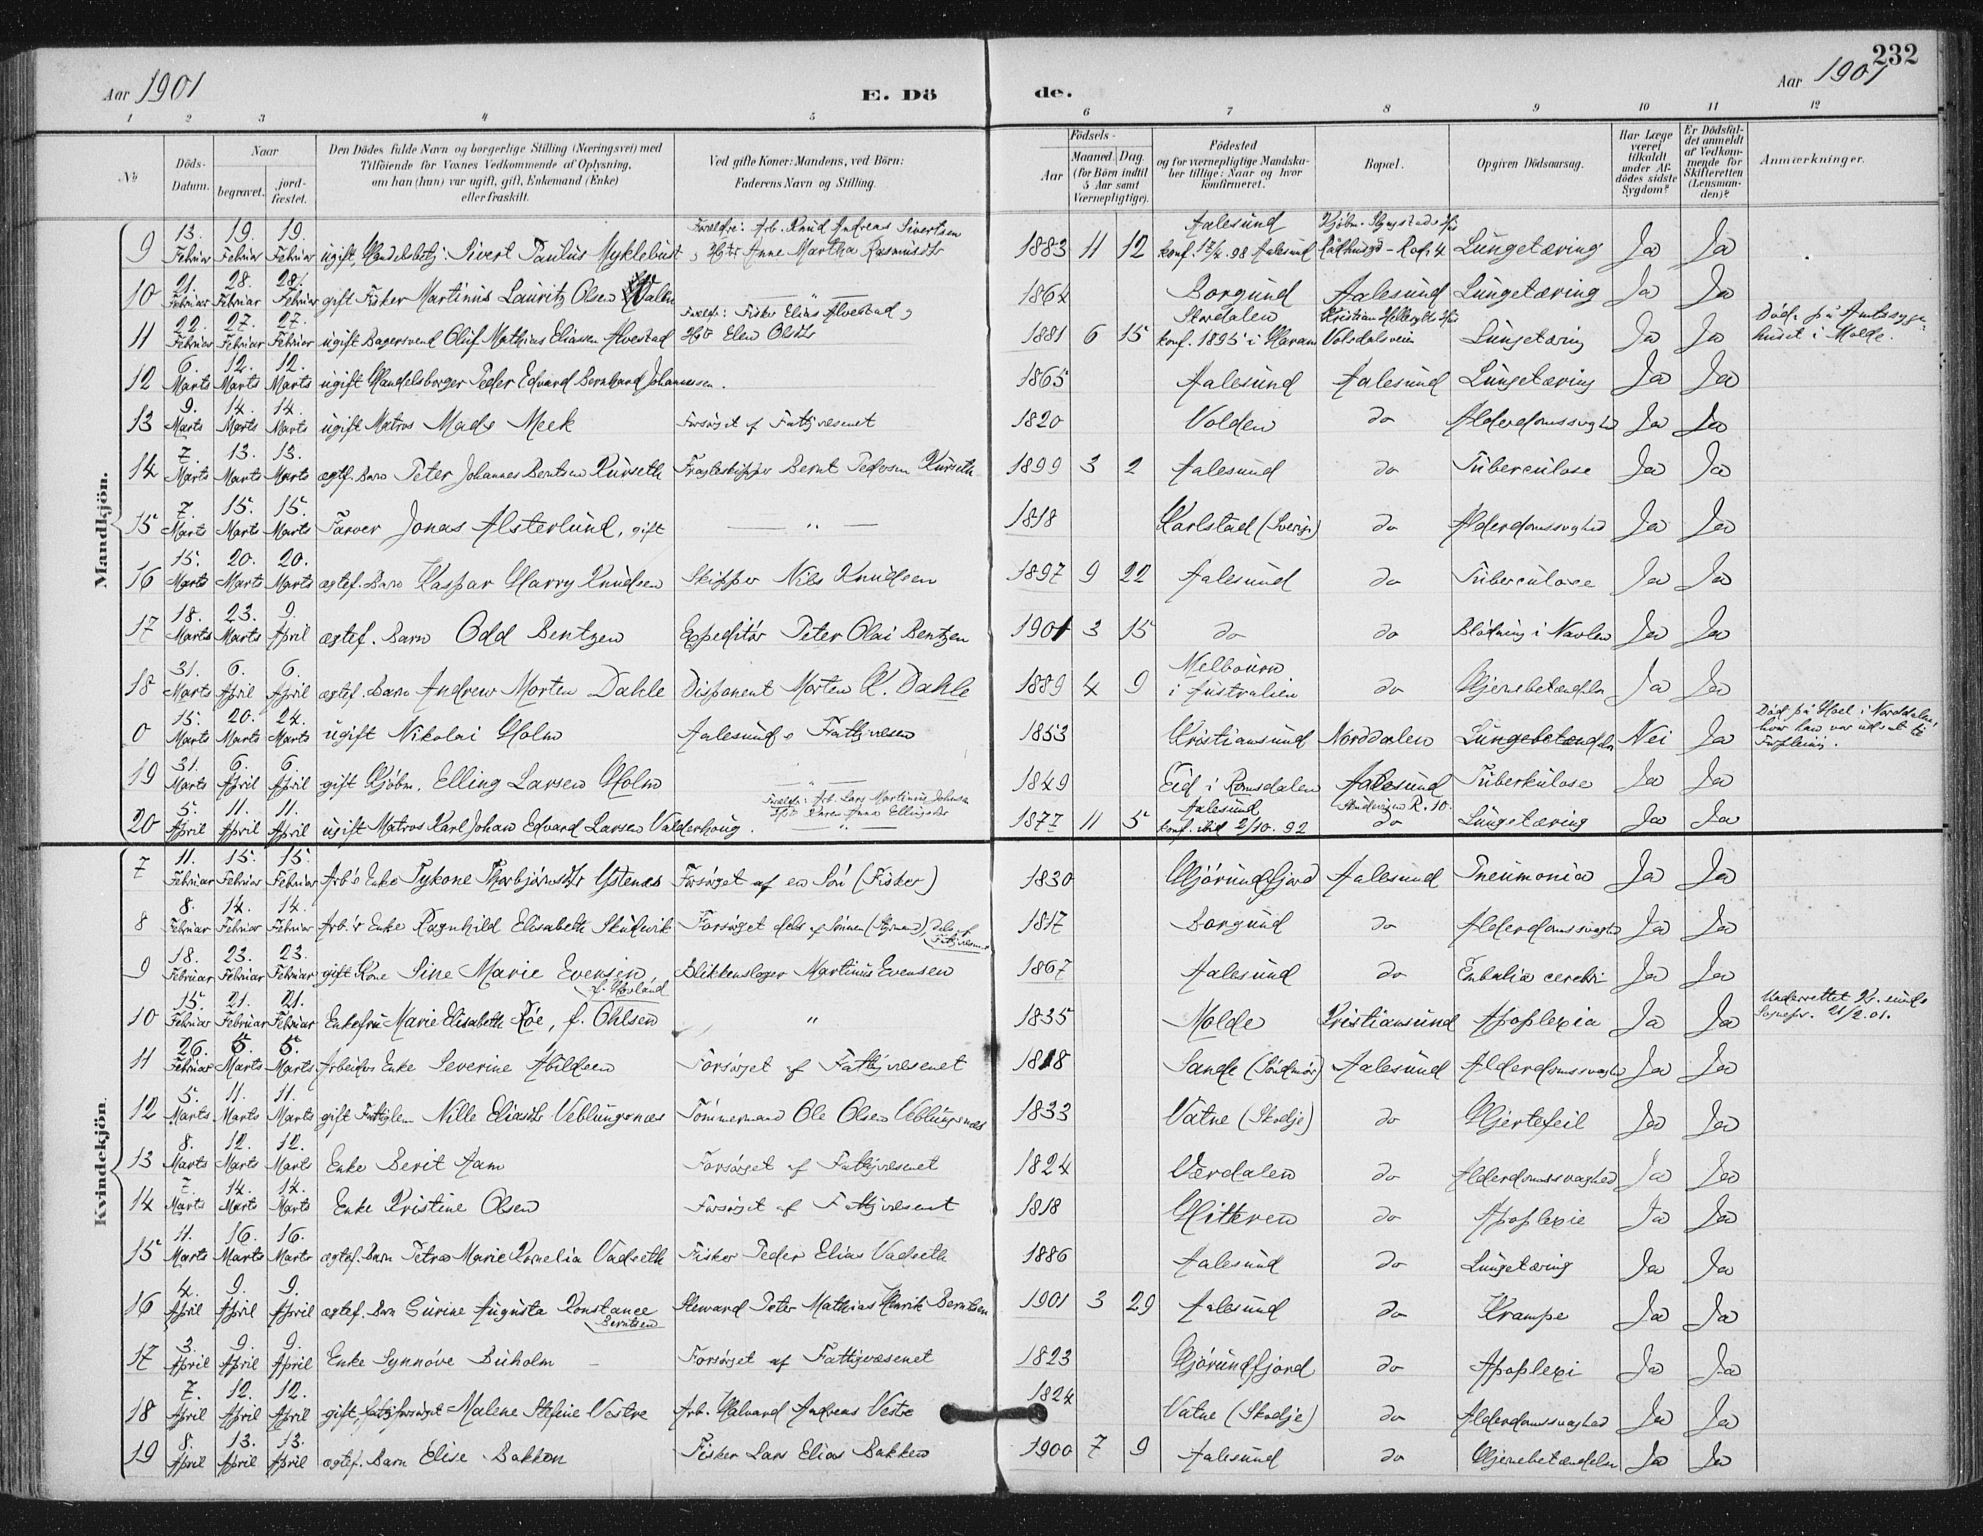 232
Aar 1901 E. Dö de. Aar 1901
1 2 3 4 5 6 7 8 9 10 11 12
No
Döds-Datum.
Naar
begravet.
jord-fæstet.
Den Dödes fulde Navn og borgerlige Stilling (Næringsvei) med
Tilföiende for Voxnes Vedkommende af Oplysning,
om han (hun) var ugift, gift, Enkemand (Enke)
eller fraskilt.
Ved gifte Koner: Mandens, ved Börn:
Faderens Navn og Stilling.
Födsels-
Aar
Maaned. Dag.
(for Börn indtil
5 Aar samt
Værnepligtige).
Födested
og for værnepligtige Mandska-
ber tillige: Naar og hvor
konfirmeret.
Bopæl.
Opgiven Dödsaarsag.
Har Læge
været
tilkaldt
under Af-
dödes sidste
Sygdom?
Er Dödsfal-
det anmeldt
af Vedkom-
mende for
Skifteretten
(Lensman-
den)?
Anmærkninger.
Mandkjön.
Forældre: Arb. Knud Andreas Sivertsen
9 13. Februar 19. Februar 19. Februar ugift, Handelsbetj: Sivert Paulus Myklebust Anne Martha Rasmusdtr 1883 11 12 Aalesund konf. 98 Aalesund Lungetæring Ja Ja
10 21. Februar 28. Februar 28. Februar gift Fisker Martinus Lauritz Olsen — " — 1864 Borgund Aalesund Lungetæring Ja Ja
Foreldr: Fisker Elias Alvestad
11 22. Februar 27. Februar 27. Februar ugift Bagersvend Oluf Mathias Eliassen Alvestad Elen Olsdtr 1881 6 15 konf. 1895 i Haram Volsdalsveien Lungetæring Ja Ja Död på Amtssyge-
huset i Molde.
12 6. Marts 12. Marts 12. Marts ugift Handelsborger Peder Edvard Bernhard Johannessen. 1865 Aalesund Aalesund Lungetæring Ja Ja
13 9. Marts 14. Marts 14. Marts ugift Matros Mads Meek Forsörget af Fattigvæsenet 1820 Volden do Alderdomssvaghed Ja Ja
14 7. Marts 13. Marts 13. Marts ægtef. Barn Peter Johannes Berntsen Kurseth Bernt Pedersen Kurseth 1899 3 2 Aalesund do Tuberculose Ja Ja
15 7. Marts 15. Marts 15. Marts Farver Jonas Alsterlund, gift — " — 1818 Karlstad (Sverige) do Alderdomssvaghed Ja Ja
16 15. Marts 20. Marts 20. Marts ægtef. Barn Kaspar Harry Knudsen Skipper Nils Knudsen 1897 9 22 Aalesund do Tuberculose Ja Ja
17 18. Marts 23. Marts 9. April ægtef. Barn Odd Bentzen Expeditör Peter Olai Bentzen 1901 3 15 do do Blödning i Navlen Ja Ja
18 31. Marts 6. April 6. April ægtef. Barn Andrew Morten Dahle Disponent Morten K. Dahle 1889 4 9 Melbourn
i Australien do Hjernebetændelse Ja Ja
0 15. Marts 20. Marts 24. Marts ugift Nikolai Holm Aalesunds Fattigvæsen 1853 Kristiansund Norddalen Lungebetændelse Nei Ja Död på Hoel i Norddalen,
hvor han var udsat til
Forpleining.
19 31. Marts 6. April 6. April gift Kjöbm. Elling Larsen Holm — " — 1849 Eid i Romsdalen Aalesund Tuberkulose Ja Ja
Foreldr: Arb. Lars Martinius Johnsen
20 5. April 11. April 11. April ugift Matros Karl Johan Edvard Larsen Valderhoug. Karen Anna Ellingsdtr — " — 1877 11 5 Aalesund
konf. ibid 2/10. 92 do Lungetæring Ja Ja
Kvindekjön.
7 11. Februar 15. Februar 15. Februar Arb's Enke Tykone Thorbjörnsdtr Ystenes Forsörget af en Sön (Fisker) 1830 Hjörundfjord Aalesund Pneumonia Ja Ja
8 8. Februar 14. Februar 14. Februar Arb's Enke Ragnhild Elisabeth Skudvik Forsörget dels af Sönnen (Styrmand) dels af
Fattigvæsenet 1817 Borgund do Alderdomssvaghed Ja Ja
9 18. Februar 23. Februar 23. Februar gift Kone Sine Marie Evensen, f. Hovland Blikkenslager Martinus Evensen 1867 Aalesund do Embolia cerebri Ja Ja
10 15. Februar 21. Februar 21. Februar Enkefru Marie Elisabeth Röe, f. Ohlsen " 1835 Molde Kristiansund Apoplexia Ja Ja Underrettet Kr.sunds
Sognepr. 21/2.01.
11 26. Februar 5. Marts 5. Marts Arbeiders Enke Severine Abildsen Forsörget af Fattigvæsenet 1818 Sande (Söndmör) Aalesund Alderdomssvaghed Ja Ja
12 5. Marts 11. Marts 11. Marts gift Nille Eliasdtr Veblungsnes Tömmermand Ole Olsen Veblungsnes 1833 Vatne (Skodje) do Hjertefeil Ja Ja
13 8. Marts 12. Marts 12. Marts Enke Berit Aam Forsörget af Fattigvæsenet 1824 Værdalen do Alderdomssvaghed Ja Ja
14 7. Marts 14. Marts 14. Marts Enke Kristine Olsen Forsörget af Fattigvæsenet 1818 Hitteren do Apoplexie Ja Ja
15 11. Marts 16. Marts 16. Marts ægtef. Barn Petra Marie Kornelia Vadseth Fisker Peder Elias Vadseth 1886 Aalesund do Lungetæring Ja Ja
16 4. April 9. April 9. April ægtef. Barn Gurine Augusta Konstance Berntsen Steward Peter Mathias Henrik Berntsen 1901 3 29 Aalesund do Krampe Ja Ja
17 3. April 9. April 9. April Enke Synnöve Buholm — Forsörget af Fattigvæsenet 1823 Hjörundfjord do Apoplexi Ja Ja
18 7. April 12. April 12. April gift, Malene Stefine Vestre Arb. Halvard Andreas Vestre 1824 Vatne (Skodje) do Alderdomssvaghed Ja Ja
19 8. April 13. April 13. April ægtef. Barn Elise Bakken Fisker Lars Elias Bakken 1900 7 9 Aalesund do Hjernebetændelse Ja Ja